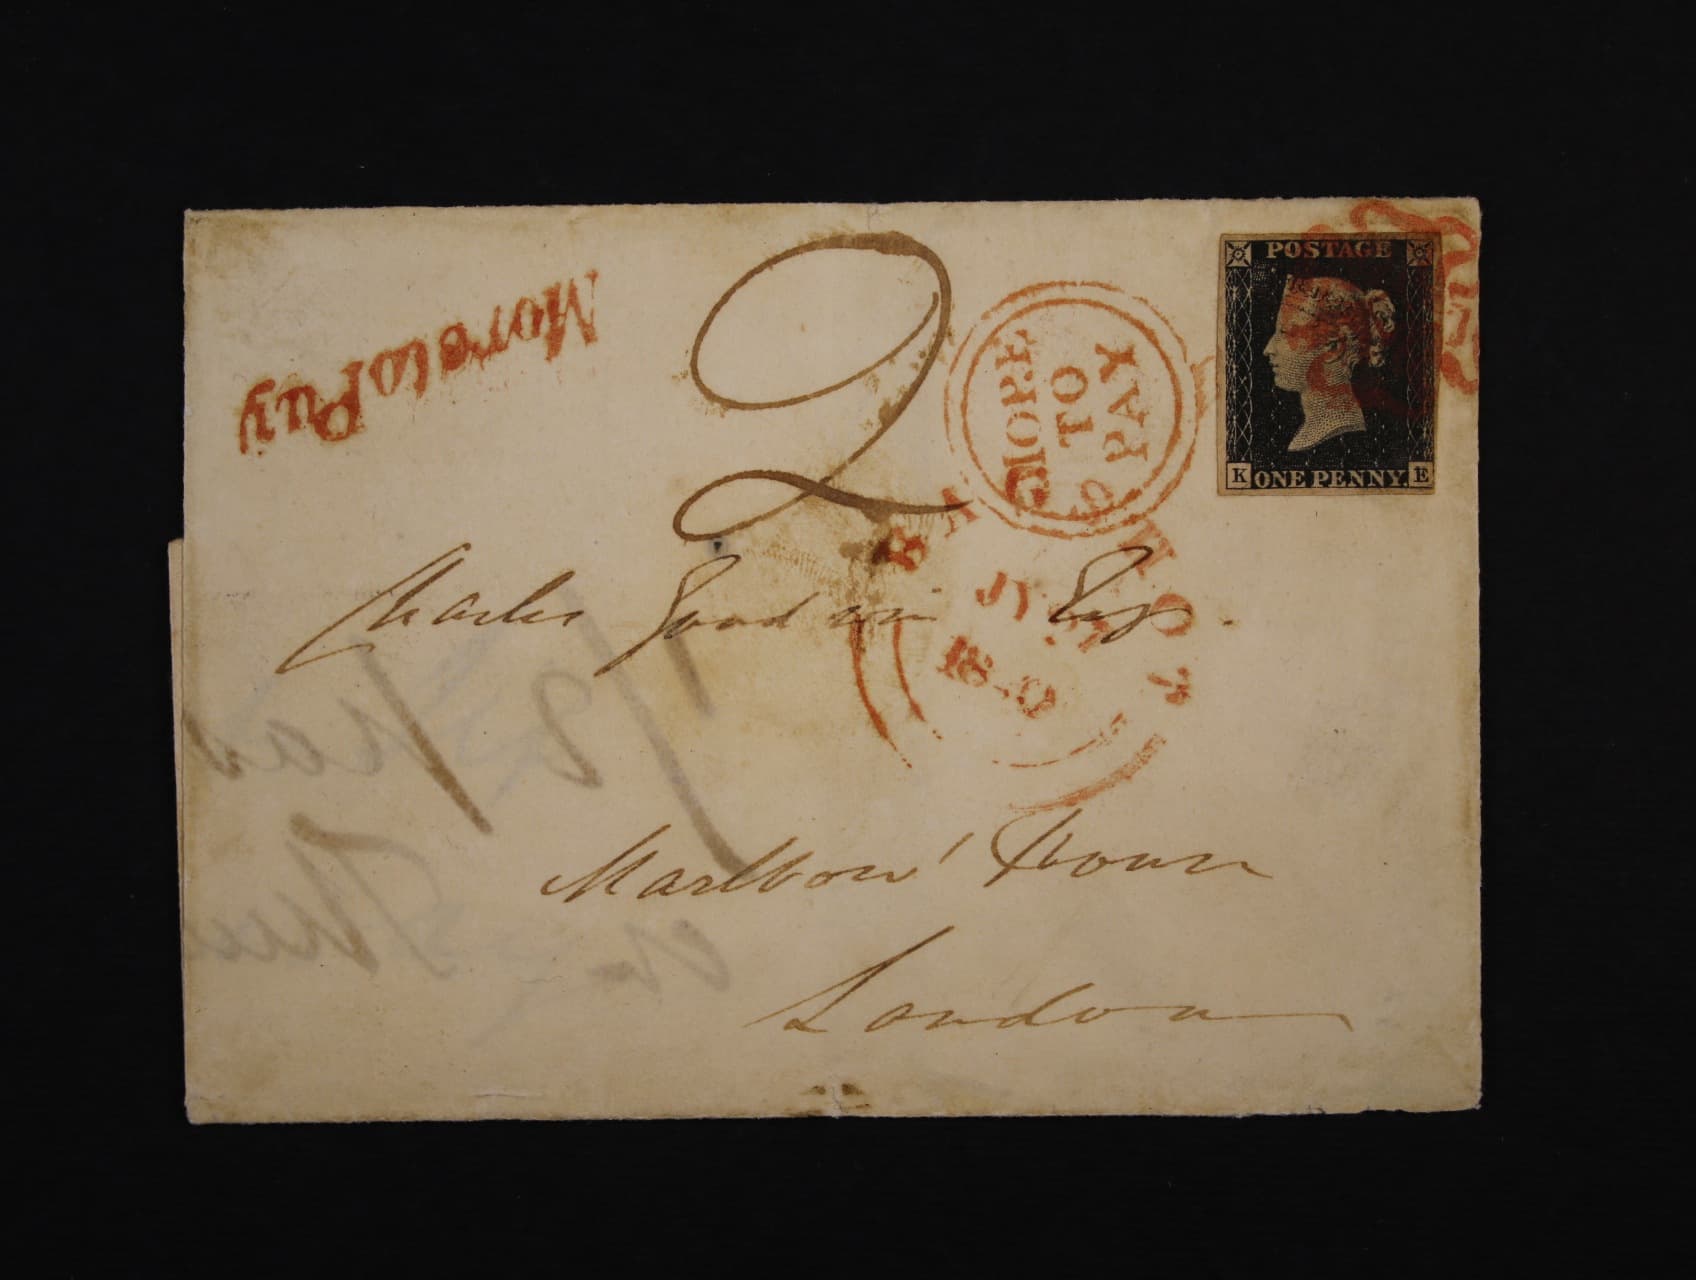 More to Pay
2
MORE
TO
PAY
BAGSHOT
JY
1840
POSTAGE
K ONE PENNY. E
Charles Goodwin Esqr.
Marlboro' House
London